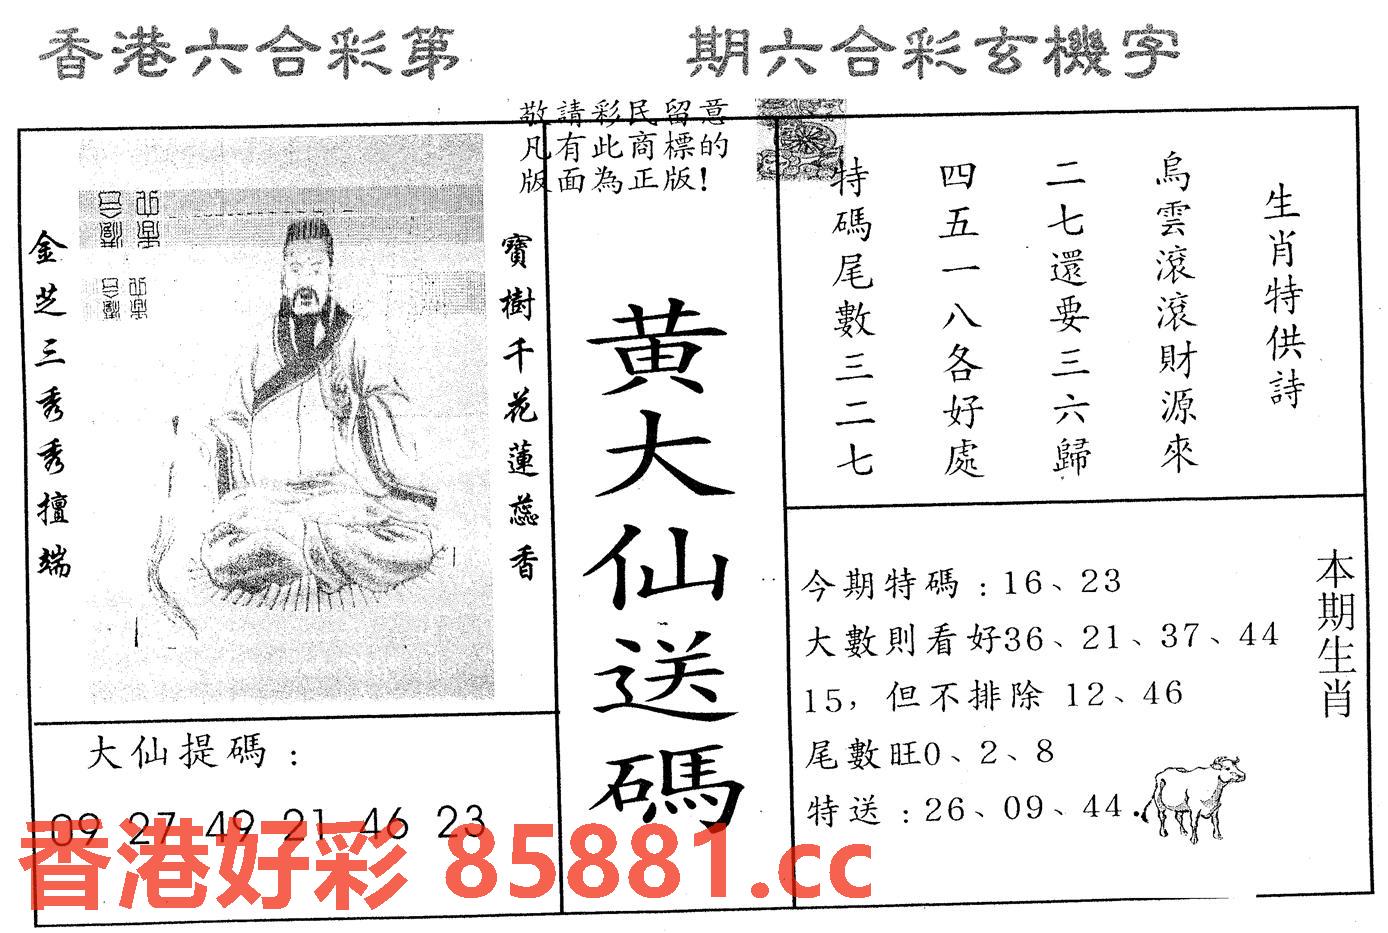 香港六合彩第　期六合彩玄機字
敬請彩民留意
凡有此商標的
版面為正版!
金芝三秀秀擅端
寶樹千花蓮蕊香
大仙提碼：
09 27 49 21 46 23
黃大仙送碼
生肖特供詩
烏雲滾滾財源來
二七還要三六歸
四五一八各好處
特碼尾數三二七
本期生肖
今期特碼：16、23
大數則看好36、21、37、44
15，但不排除 12、46
尾數旺0、2、8
特送：26、09、44.
香港好彩 85881.cc